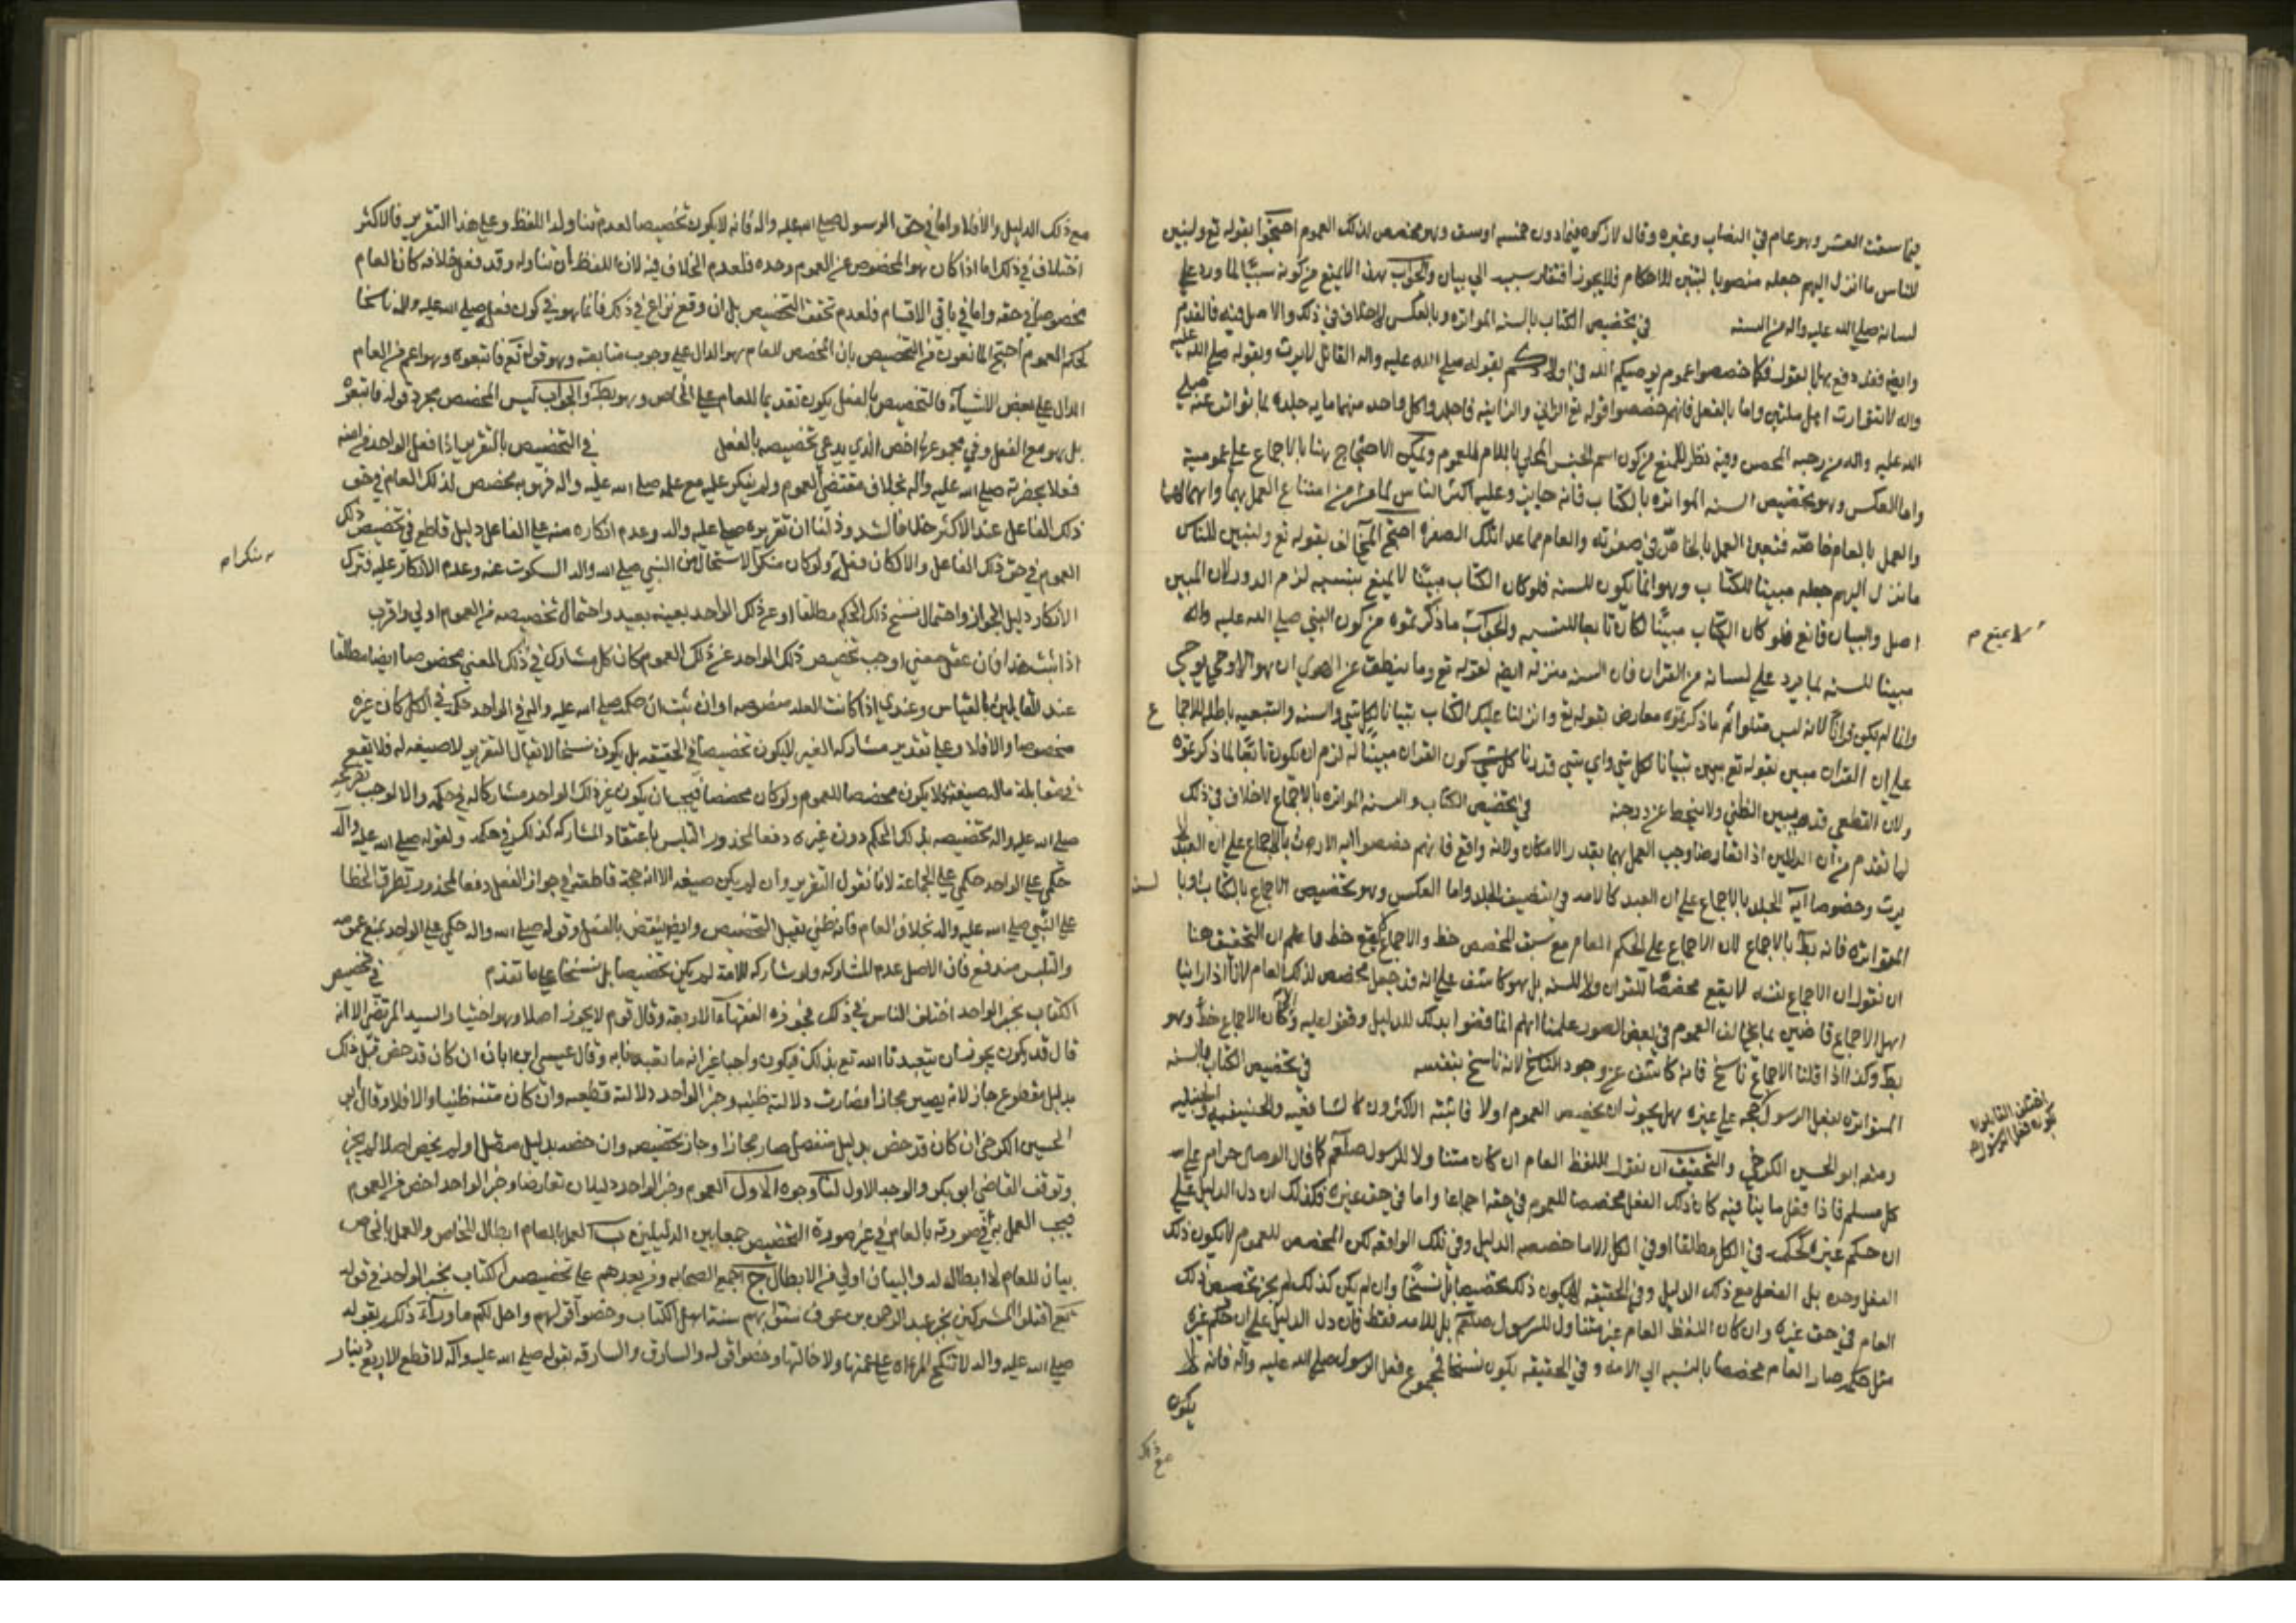 فيما سقت العشر وهو عام في النصاب وغيره وقال لا زكوة فيما دون خمسة اوسق وهو مخصص لذلك العموم احتجوا بقوله تع ولتبين
للناس ما انزل اليهم جعله منصوبا لتبيين للاحكام فلا يجوز افتقار سببه الي بيان والجواب هذا لا يمنع من كونه مبينا لما ورد علي
لسانه صلي الله عليه واله من السنه في تخصيص الكتاب بالسنه المتواتره وبالعكس لا خلاف في ذلك والاصل فيه ما تقدم
وايض فقد وقع بهما بقوله فكما خصصوا عموم يوصيكم الله في اولادكم بقوله صلي الله عليه واله القاتل لا يرث وبقوله صلي الله عليه
واله لا يتوارث اهل ملتين واما بالفعل فانهم خصصوا قوله تع الزاني والزانية فاجلدوا كل واحد منهما مايه جلده بما تواتر عنه صلي
الله عليه واله من رجمه المحصن وفيه نظر للمنع من كون اسم الجنس المحلي باللام للعموم ويمكن الاحتجاج هنا بالاجماع علي عموميه
واما العكس وهو تخصيص السنه المتواتره بالكتاب فانه جايز وعليه اكثر الناس لما مر من امتناع العمل بهما واهمالهما
والعمل بالعام خاصة فتعين العمل بالخاص في صورته والعام فيما عدا تلك الصورة احتج المخالف بقوله تع ولتبين للناس
ما نزل اليهم جعله مبينا للكتاب وهو انما يكون للسنه فلو كان الكتاب مبينا لا يمنع بنسبه لزم الدور لان المبين
اصل والبيان تابع فلو كان الكتاب مبينا لكان تابعا للسنه والجواب ما ذكرتموه من كون النبي صلي الله عليه واله
مبينا للسنه بما يرد علي لسانه من القران فان السنه منزله ايض لقوله تع وما ينطق عن الهوي ان هو الا وحي يوحي
وانما لم يكن قرانا لانه ليس متلوا ثم ما ذكرتموه معارض بقوله تع وانزلنا عليك الكتاب تبيانا لكل شي والسنه والتبعيه باطله للاجماع
علي ان القران مبين بقوله تع تبيانا لكل شي واي شي قدرنا كون القران مبينا له لزم ان يكون تابعا لما ذكرتموه
ولان القطعي قد يبين الظني ولا ينحط عن درجته في تخصيص الكتاب والسنه المتواتره بالاجماع لا خلاف في ذلك
لما تقدم من ان الدليلين اذا تعارضا وجب العمل بهما بقدر الامكان ولانه واقع فانهم خصصوا ايه الارث بالاجماع علي ان العبد لا
يرث وخصوصا آية الجلد بالاجماع علي ان العبد كالامه في تنصيف الجلد واما العكس وهو تخصيص الاجماع بالكتاب او بالسنه
المتواتره فانه بط بالاجماع لان الاجماع علي الحكم العام مع سبق المخصص خطا والاجماع لا يقع خطا واعلم ان التحقيق هنا
ان نقول ان الاجماع نفسه لا يقع مخصصا للقران ولا للسنه بل هو كاشف علي انه قد جعل مخصص لذلك العام لانا اذا راينا
اهل الاجماع قاضين بما يخالف العموم في بعض الصور علمنا انهم انما قضوا بذلك لدليل وقفوا عليه والا كان الاجماع خطا وهو
بط وكذا اذا قلنا الاجماع ناسخ فانه كاشف عن وجود الناسخ لا انه ناسخ بنفسه في تخصيص الكتاب بالسنه
المتواتره بفعل الرسول حجه علي غيره هل يجوز ان تخصيص العموم اولا فاثبته الاكثرون كالشافعيه والحنيفيه والحنبليه
ومنعه ابو الحسين الكرخي والتحقيق ان نقول اللفظ العام ان كان متنا ولا للرسول صلعم كما قال الوصال حرام علي
كل مسلم فاذا فعل ما ينافيه كان ذلك الفعل مخصصا للعموم في حقه اجماعا واما في حق غيره فكذلك ان دل الدليل علي
ان حكم غيره كحكمه في الكل مطلقا او في الكل الا ما خصصه الدليل وفي تلك الواقعه لكن المخصص للعموم لا يكون ذلك
الفعل وحده بل الفعل مع ذلك الدليل وفي الحقيقه لا يكون ذلك تخصيصا بل نسخا وان لم يكن كذلك لم يجز تخصيص ذلك
العام في حق غيره وان كان اللفظ العام غير متناول للرسول صلعم بل للامه فقط فان دل الدليل علي ان حكم غيره
مثل حكمه صار العام مخصصا بالنسبه الي الامه وفي الحقيقه يكون نسخا لمجموع فعل الرسول صلي الله عليه واله فانه لا
يكون
مع ذلك
لا يمنع م
اختلف القايلون
بكون فعل الرسول م
مع ذلك الدليل والا فلا واما في حق الرسول صلي الله عليه واله فانه لا يكون تخصيصا لعدم تناوله اللفظ وعلي هذا التقرير فالاكثر
اختلاف في ذلك اما اذا كان هو المخصوص عن العموم وحده فلعدم الخلاف فيه لان اللفظ ان تناوله وقد فعل خلافه كان العام
مخصوصا في حقه واما في باقي الاقسام فلعدم تحقق التخصيص بل ان وقع نزاع في ذلك فانما هو في كون فعله صلي الله عليه واله ناسخا
لحكم العموم احتج المانعون من التخصيص بان المخصص للعام هو الدال علي وجوب متابعته وهو قوله تع فاتبعوه وهو اعم من العام
الدال علي بعض الاشيآء فالتخصيص بالفعل يكون تقديما للعام علي الخاص وهو بط والجواب ليس المخصص مجرد قوله فاتبعوه
بل هو مع الفعل وفي مجموعهما اخص الذي يدعي تخصيصه بالفعل في التخصيص بالتقرير اذا فعل الواحد من امته
فعلا بحضرته صلي الله عليه واله بخلاف مقتضي العموم ولم ينكر عليه مع علمه صلي الله عليه واله فهو مخصص لذلك العام في حق
ذلك الفاعل عند الاكثر خلافا لشذوذ لنا ان تقريره صلي عليه واله وعدم انكاره منه علي الفاعل دليل قاطع في تخصيص ذلك
العموم في حق ذلك الفاعل والا لكان فعله ولو كان منكرا لاستحال من النبي صلي الله واله السكوت عنه وعدم الانكار عليه فترك
الانكار دليل الجواز واحتمال نسخ ذلك الحكم مطلقا او عن ذلك الواحد بعينه بعيد واحتمال تخصيصه من العموم اولي واقرب
اذا ثبت هذا فان عقل معني اوجب تخصيص ذلك الواحد عن ذلك العموم كان كل مشارك في ذلك المعني مخصوصا ايضا مطلقا
عند القايلين بالقياس وعندي اذا كانت العله منصوصه او ان ثبت ان حكمه صلي الله عليه واله في الواحد حكمه في الكل كان غيره
مخصوصا والا فلا وعلي تقدير مشاركه الغير لا يكون تخصيصا في الحقيقه بل يكون نسخا لا يقال التقرير لا صيغه له فلا يقع
في مقابلة ماله صيغة فلا يكون مخصصا للعموم ولو كان مخصصا فيجب ان يكون غير ذلك الواحد مشاركا له في حكمه والا لوجب تصريحه
صلي الله عليه واله تخصيصه بذلك الحكم دون غيره دفعا لمحذور التلبس باعتقاد المشاركه كذلك في حكمه ولقوله صلي الله عليه واله
حكمي علي الواحد حكمي علي الجماعة لانا نقول التقرير وان لم يكن صيغه الا انه حجة قاطعة في جواز الفعل دفعا لمحذور تطرق الخطا
علي النبي صلي الله عليه واله بخلاف العام فانه ظني يقبل التخصيص وايض ينتقض بالفعل وقوله صلي الله واله حكمي علي الواحد نمنع عمومه
والتلبس مندفع فان الاصل عدم المشاركه ولو شاركه للامة لم يكن تخصيصا بل نسخا علي ما تقدم في تخصيص
الكتاب بخبر الواحد اختلف الناس في ذلك فجوزه الفقهآء الاربعه وقال قوم لا يجوز اصلا وهو اختيار السيد المرتضي الا انه
قال قد كون يجوز ان يتعبدنا الله تع بذلك فيكون واجبا غير انه ما تعبدنا به وقال عيسي ابن ابان ان كان قد خص قبل ذلك
بدليل مقطوع جاز لانه يصير مجازا فصارت دلالته ظنيه وخبر الواحد دلالته قطعيه وان كان متنه ظنيا والا فلا وقال ابو
الحسين الكرخي ان كان قد خص بدليل منفصل صار مجازا وجاز تخصيصه وان خص بدليل متصل او لم يخص اصلا لم يجز
وتوقف القاضي ابو بكر والوجه الاول لنا وجوه الاول العموم وخبر الواحد دليلان تعارضا وخبر الواحد اخص من العموم
فيجب العمل به في صورته بالعام في غير صورة التخصيص جمعا بين الدليلين ب العمل بالعام ابطال للخاص والعمل بالخاص
بيان للعام لا ابطال له والبيان اولي من الابطال ج اجمع الصحابه ومن بعدهم علي تخصيص الكتاب بخبر الواحد في قوله
تع اقتلوا المشركين بخبر عبد الرحمن بن عوف سنوا بهم سنة اهل الكتاب وخصوا قوله واحل لكم ما ورآء ذلكم بقوله
صلي الله عليه واله لا تنكح المراه علي عمتها ولا خالتها وخصوا قوله والسارق والسارقه بقوله صلي الله عليه واله لا قطع الا ربع دينار
منكرا م